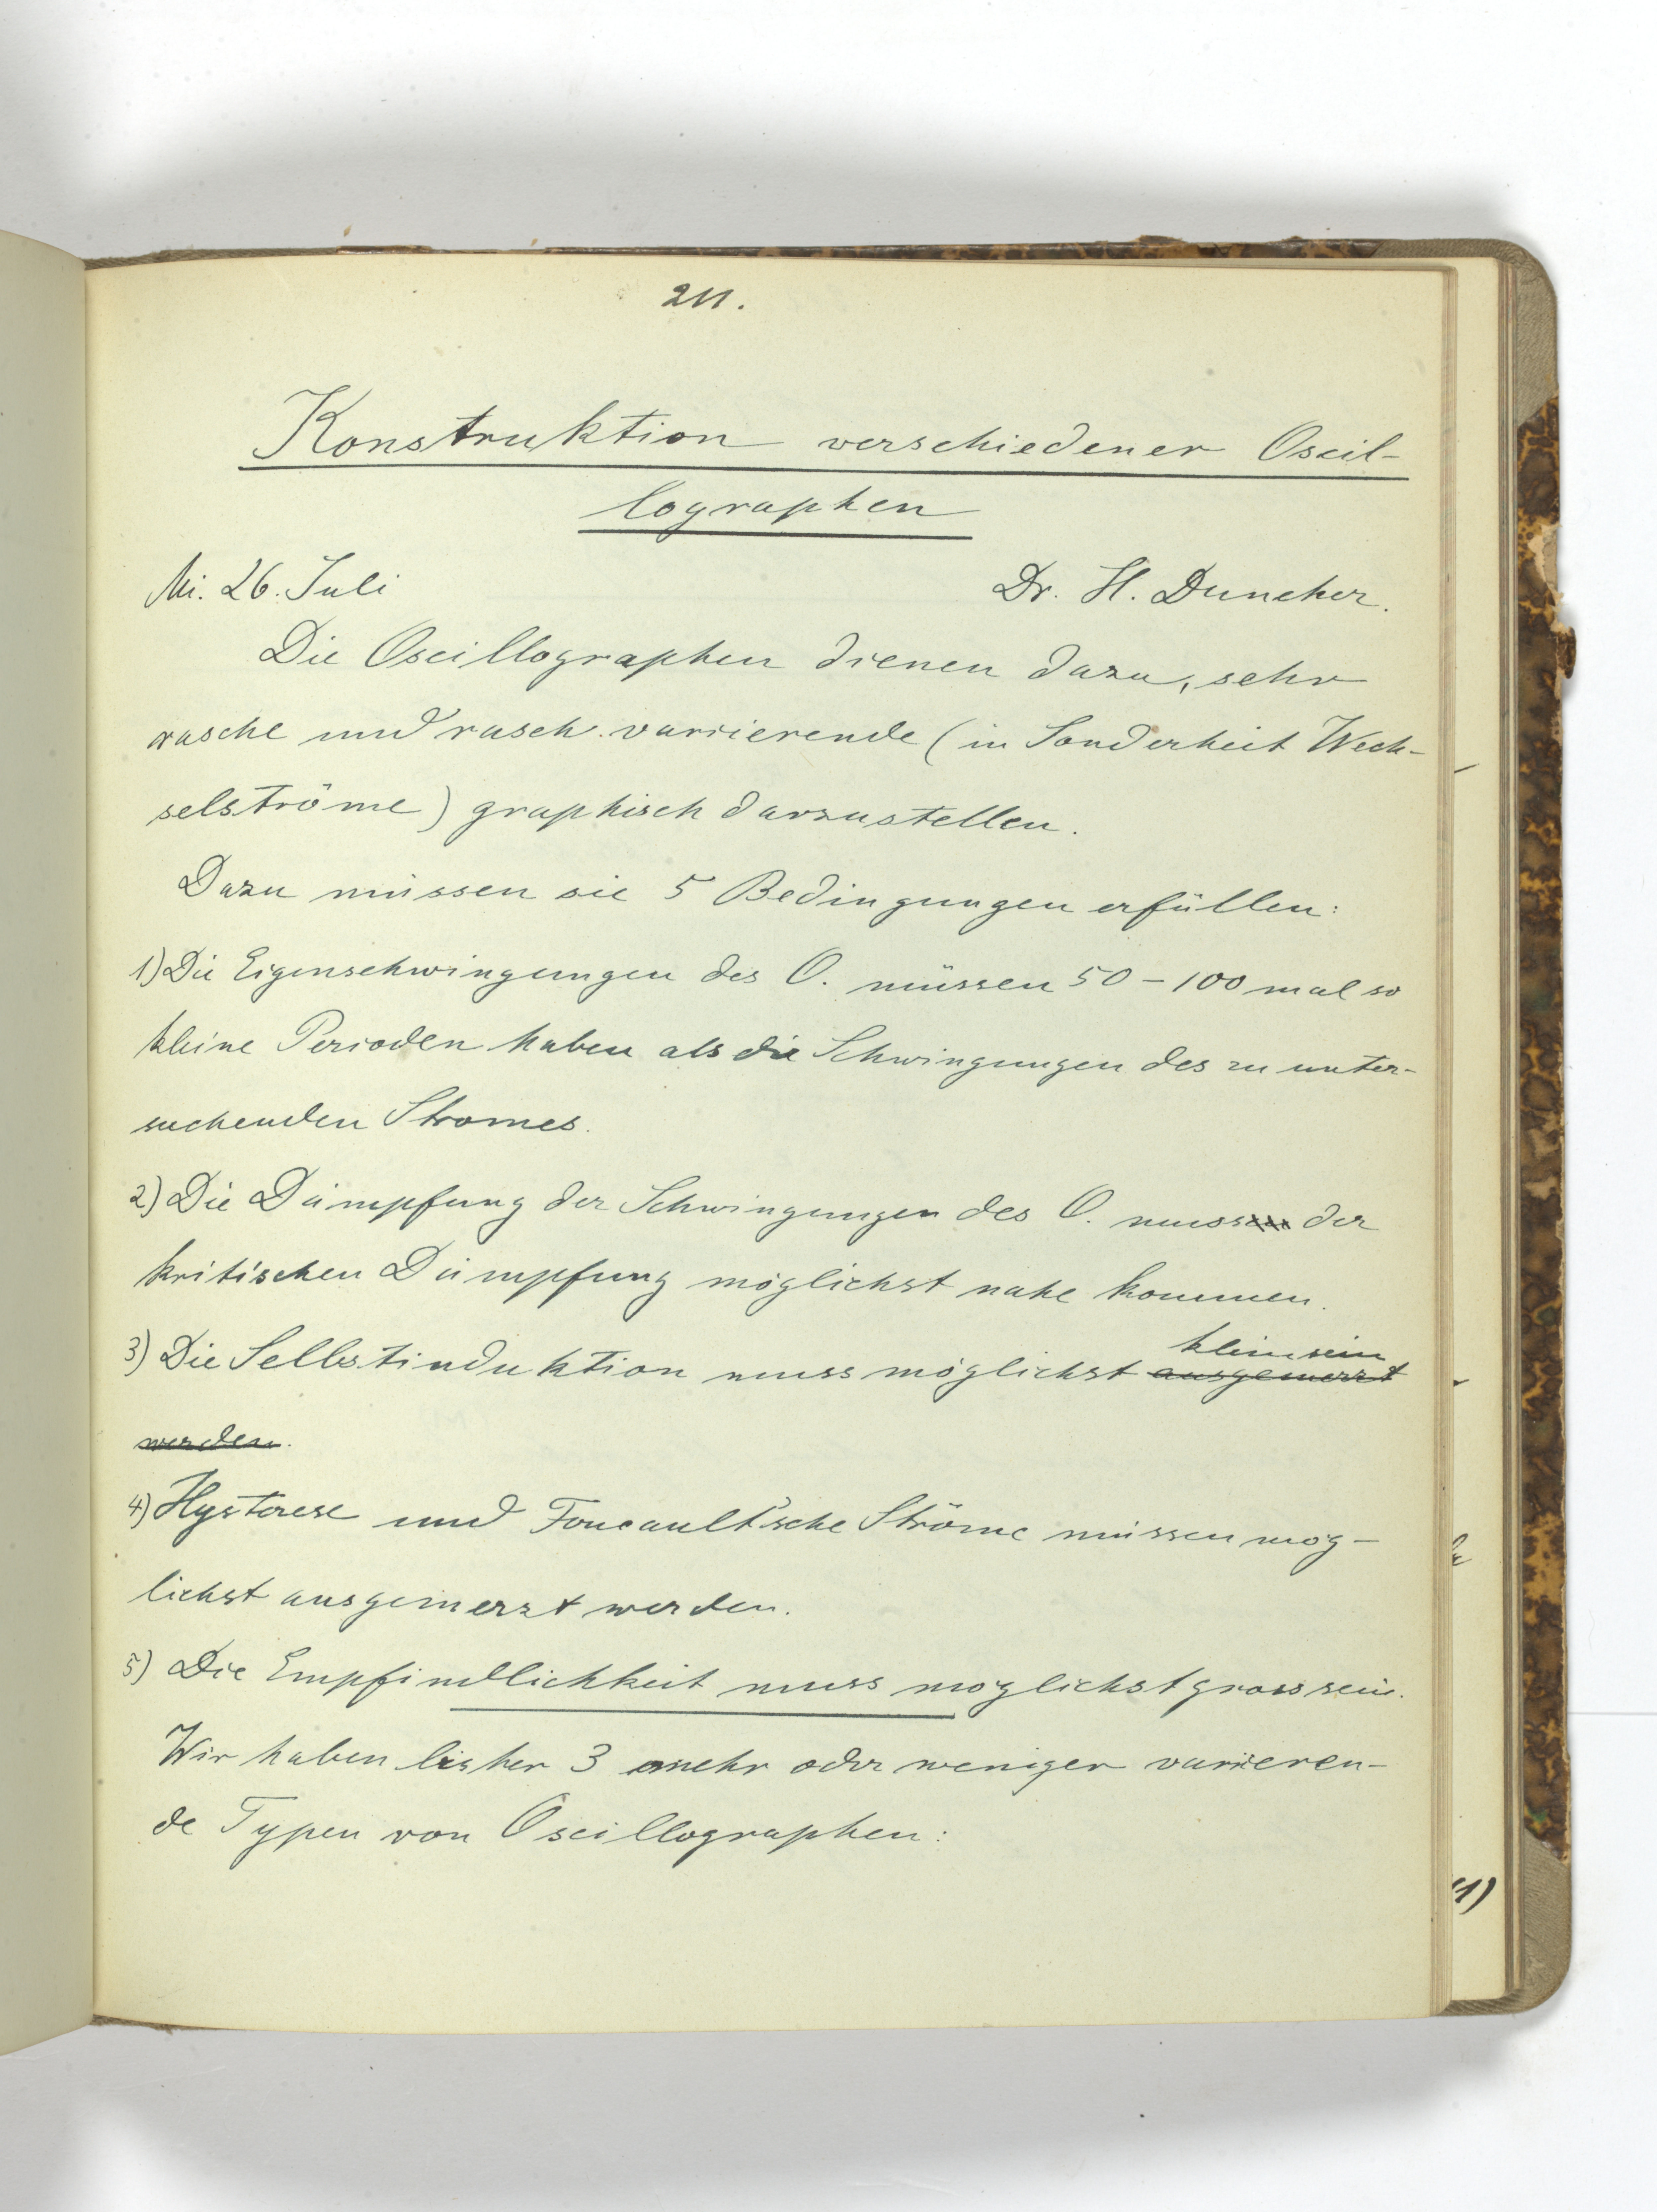 211.
Konstruktion verschiedener Oscil-
lographen
Mi. 26. Juli Dr. H. Duncker.
Die Oscillographen dienen dazu, sehr
rasche und rasch variierende (in Sonderheit Wech-
selströme) graphisch darzustellen.
Dazu müssen sie 5 Bedingungen erfüllen:
1) Die Eigenschwingungen des O. müssen 50-100 mal so
kleine Perioden haben als die Schwingungen des zu unter-
suchenden Stromes.
2) Die Dämpfung der Schwingungen des O. muss der
kritischen Dämpfung möglichst nahe kommen.
klein sein
3) Die Selbstinduktion muss möglichst ausgemerzt
werden.
4) Hysterese und Foucault'sche Ströme müssen mög-
lichst ausgemerzt werden.
5) Die Empfindlichkeit muss möglichst gross sein.
Wir haben bisher 3 mehr oder weniger variieren-
de Typen von Oscillographen:
1)